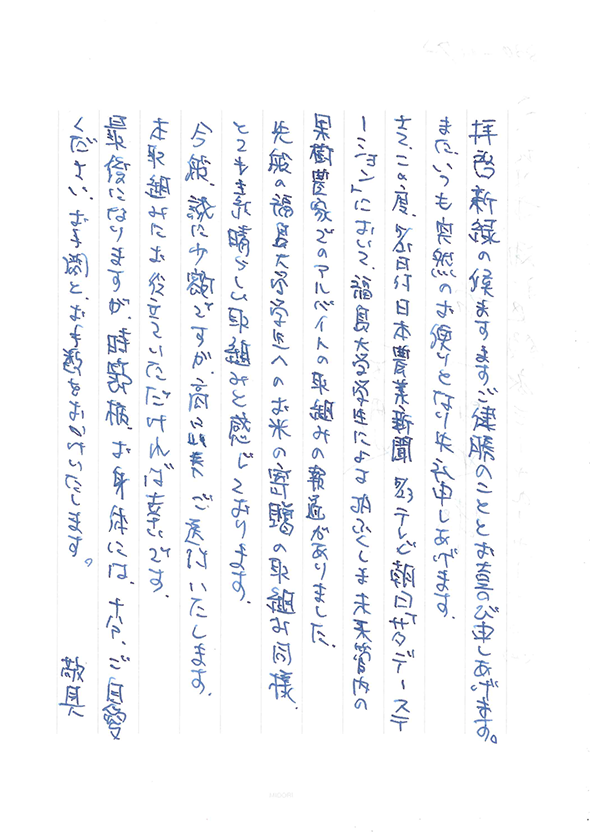 拝啓 新緑の候ますますご健勝のこととお喜び申しあげます。
また、いつも突然のお便りとなり失礼申しあげます。
さて、この度、日付日本農業新聞 テレビ朝日「サタデーステ
ーション」において、福島大学学生によるふくしま未来管内の
果樹農家でのアルバイトの取組みの報道がありました。
先般の福島大学学生へのお米の寄贈の取組み同様、
とても素晴らしい取組みと感じております。
今般、誠に少額ですが、ご送付いたします。
本取組みにお役立ていただければ幸いです。
最後になりますが、時節柄、お身体には、十分、ご自愛
ください。お手間と、お手数をおかけいたします。
敬具